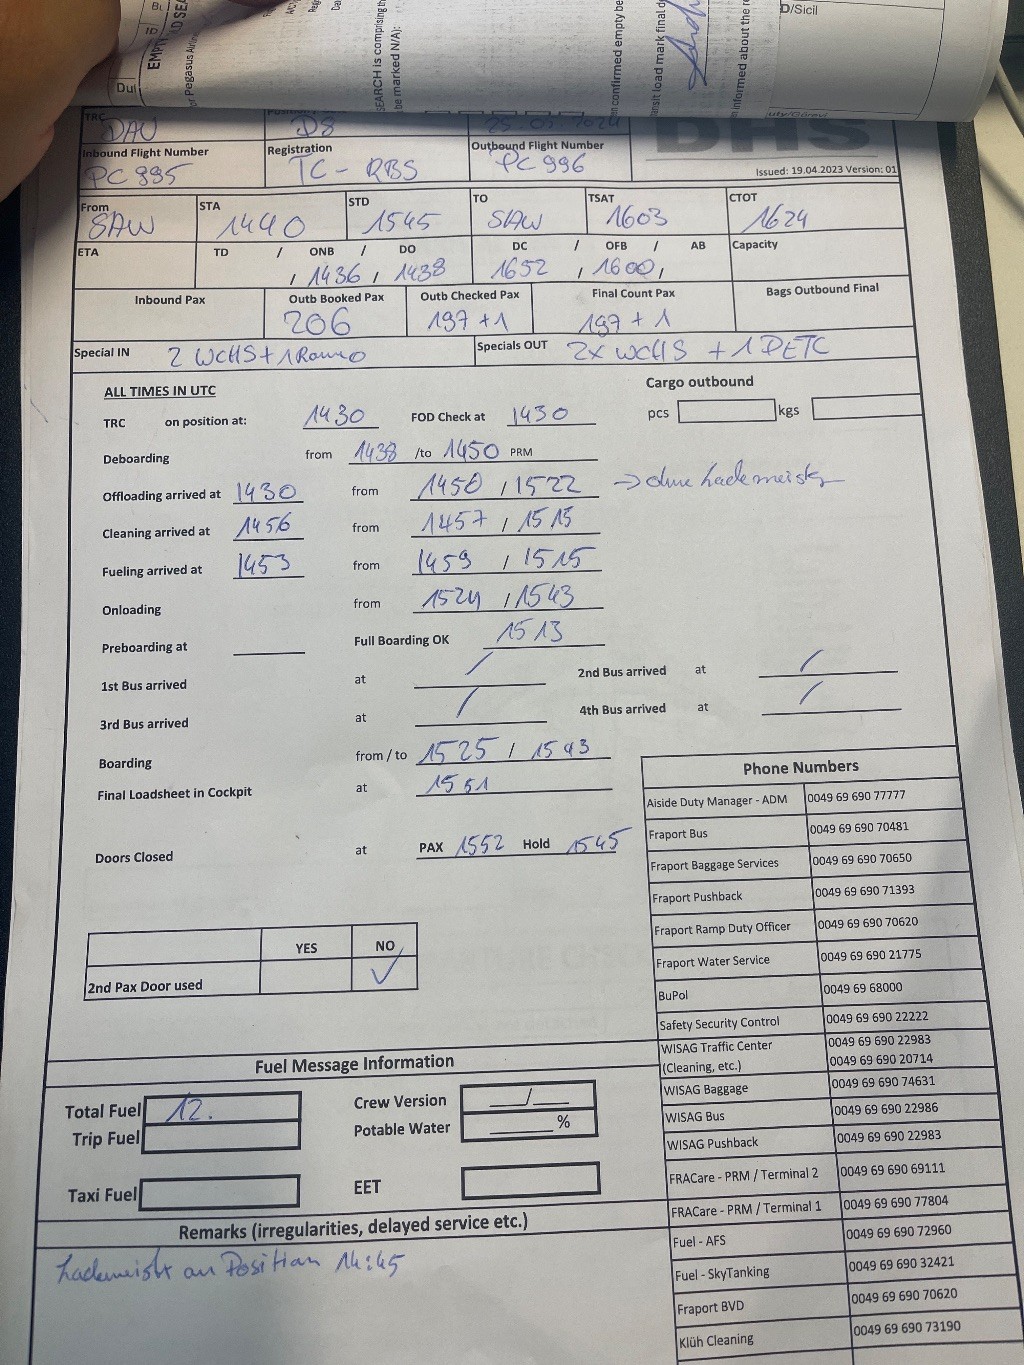 BL
ID
EMPTY
AD SEA
or Pegasus Airlin
SEARCH is comprising th
be marked N/A):
n confirmed empty be
ansit load mark final d
informed about the r
D/Sicil
Dut
uty/Görevi
TRC
DAU
D8
DHS
Inbound Flight Number
Registration
Outbound Flight Number
PC 995
TC - RBS
PC 996
Issued: 19.04.2023 Version: 01
From
STA
STD
TO
TSAT
CTOT
SAW
1440
1545
SAW
1603
1624
ETA
TD / ONB / DO
DC / OFB / AB
Capacity
/ 1436 / 1438
1652 / 1600 /
Inbound Pax
Outb Booked Pax
Outb Checked Pax
Final Count Pax
Bags Outbound Final
206
197 + 1
197 + 1
Special IN 2 WCHS + 1
Specials OUT 2x WCHS + 1 PETC
ALL TIMES IN UTC
Cargo outbound
TRC on position at: 1430 FOD Check at 1430
pcs kgs
Deboarding from 1438 /to 1450 PRM
Offloading arrived at 1430 from 1450 / 1522 → ohne Lademeister
Cleaning arrived at 1456 from 1457 / 1515
Fueling arrived at 1453 from 1459 / 1515
Onloading from 1524 / 1543
Preboarding at Full Boarding OK 1513
1st Bus arrived at / 2nd Bus arrived at /
3rd Bus arrived at / 4th Bus arrived at /
Boarding from / to 1525 / 1543
Final Loadsheet in Cockpit at 1551
Doors Closed at PAX 1552 Hold 1545
YES NO
2nd Pax Door used ✓
Phone Numbers
Aiside Duty Manager - ADM 0049 69 690 77777
Fraport Bus 0049 69 690 70481
Fraport Baggage Services 0049 69 690 70650
Fraport Pushback 0049 69 690 71393
Fraport Ramp Duty Officer 0049 69 690 70620
Fraport Water Service 0049 69 690 21775
BuPol 0049 69 68000
Safety Security Control 0049 69 690 22222
WISAG Traffic Center 0049 69 690 22983
(Cleaning, etc.) 0049 69 690 20714
WISAG Baggage 0049 69 690 74631
WISAG Bus 0049 69 690 22986
WISAG Pushback 0049 69 690 22983
FRACare - PRM / Terminal 2 0049 69 690 69111
FRACare - PRM / Terminal 1 0049 69 690 77804
Fuel - AFS 0049 69 690 72960
Fuel - SkyTanking 0049 69 690 32421
Fraport BVD 0049 69 690 70620
Klüh Cleaning 0049 69 690 73190
Fuel Message Information
Total Fuel 12.
Trip Fuel
Crew Version __/__
Potable Water ____%
Taxi Fuel
EET
Remarks (irregularities, delayed service etc.)
Lademeister an Position 14:45